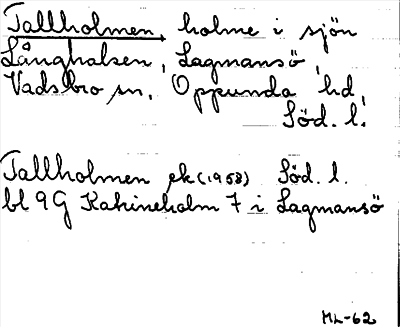 Tallholmen, holme i sjön
Långhalsen, Lagmansö,
Vadsbro sn, Oppunda hd,
Söd. l.
Tallholmen ek (1958) Söd. l.
bl 9G Katrineholm 7 i Lagmansö
ML-62